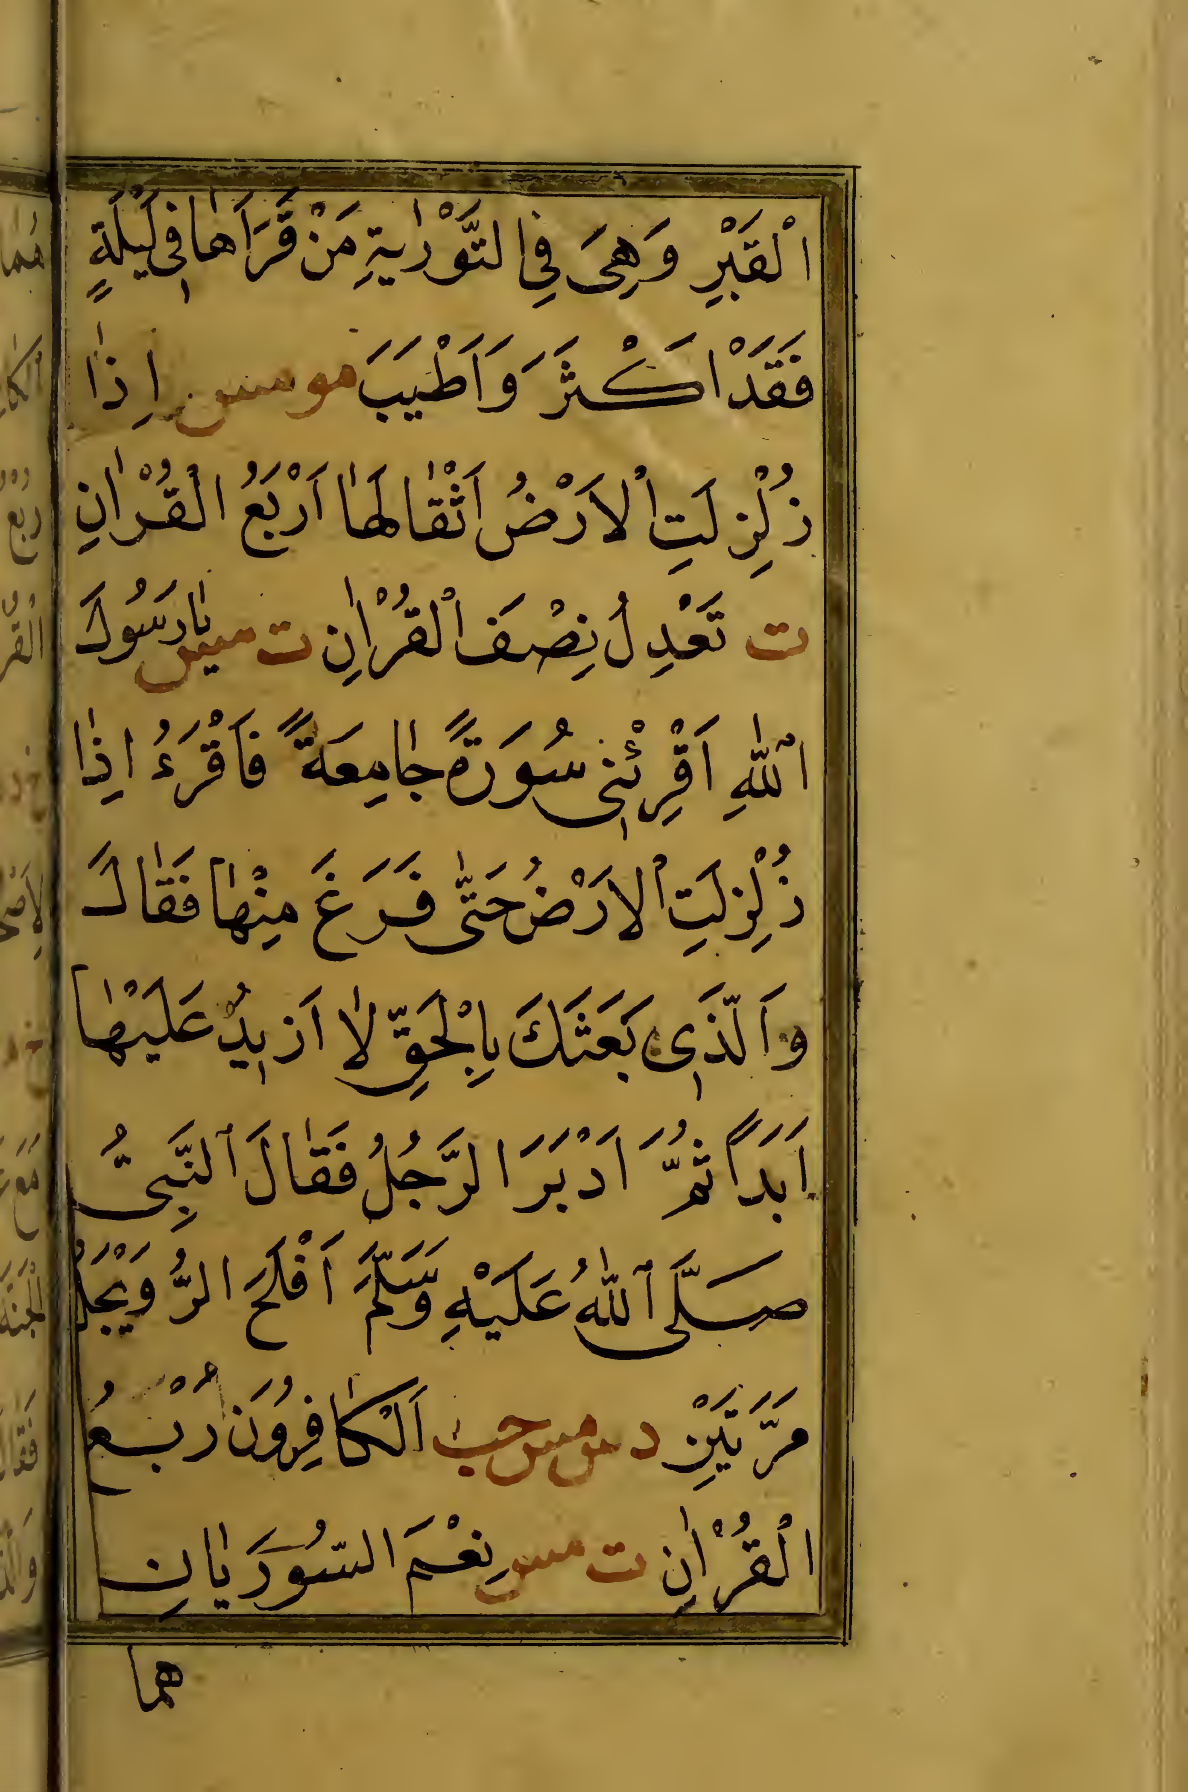 اْلقَبْرِ وَهِىَ فِى التَّوْرٰيةِ مَنْ قَرَاَهٰا فِى لَيْلَةٍ
فَقَدْ اَكْثَرَ وَاَطْيَبَ مو مس اِذٰا
زُلْزِلَتِ اْلاَرْضُ اَثْقٰالَهٰا اَرْبَعُ الْقُرْاٰنِ
ت تَعْدِلُ نِصْفَ اْلقُرْاٰنِ ت مس يٰارَسُولَ
اللّٰهِ اَقْرِئْنِى سُورَةً جٰامِعَةً فَاَقْرَءُ اِذٰا
زُلْزِلَتِ اْلاَرْضُ حَتّٰى فَرَغَ مِنْهٰا فَقٰالَ
وَالَّذِى بَعَثَكَ بِاْلحَقِّ لٰا اَزِيدُ عَلَيْهٰا
اَبَدًا ثُمَّ اَدْبَرَ الرَّجُلُ فَقٰالَ النَّبِىُّ
صَلَّى اللّٰهُ عَلَيْهِ وَسَلَّمَ اَفْلَحَ الرُّوَيْجِلُ
مَرَّتَيْنِ د س مس حب اَلْكٰافِرُونَ رُبْعُ
اْلقُرْاٰنِ ت مس نِعْمَ السُّورَتٰانِ
هما